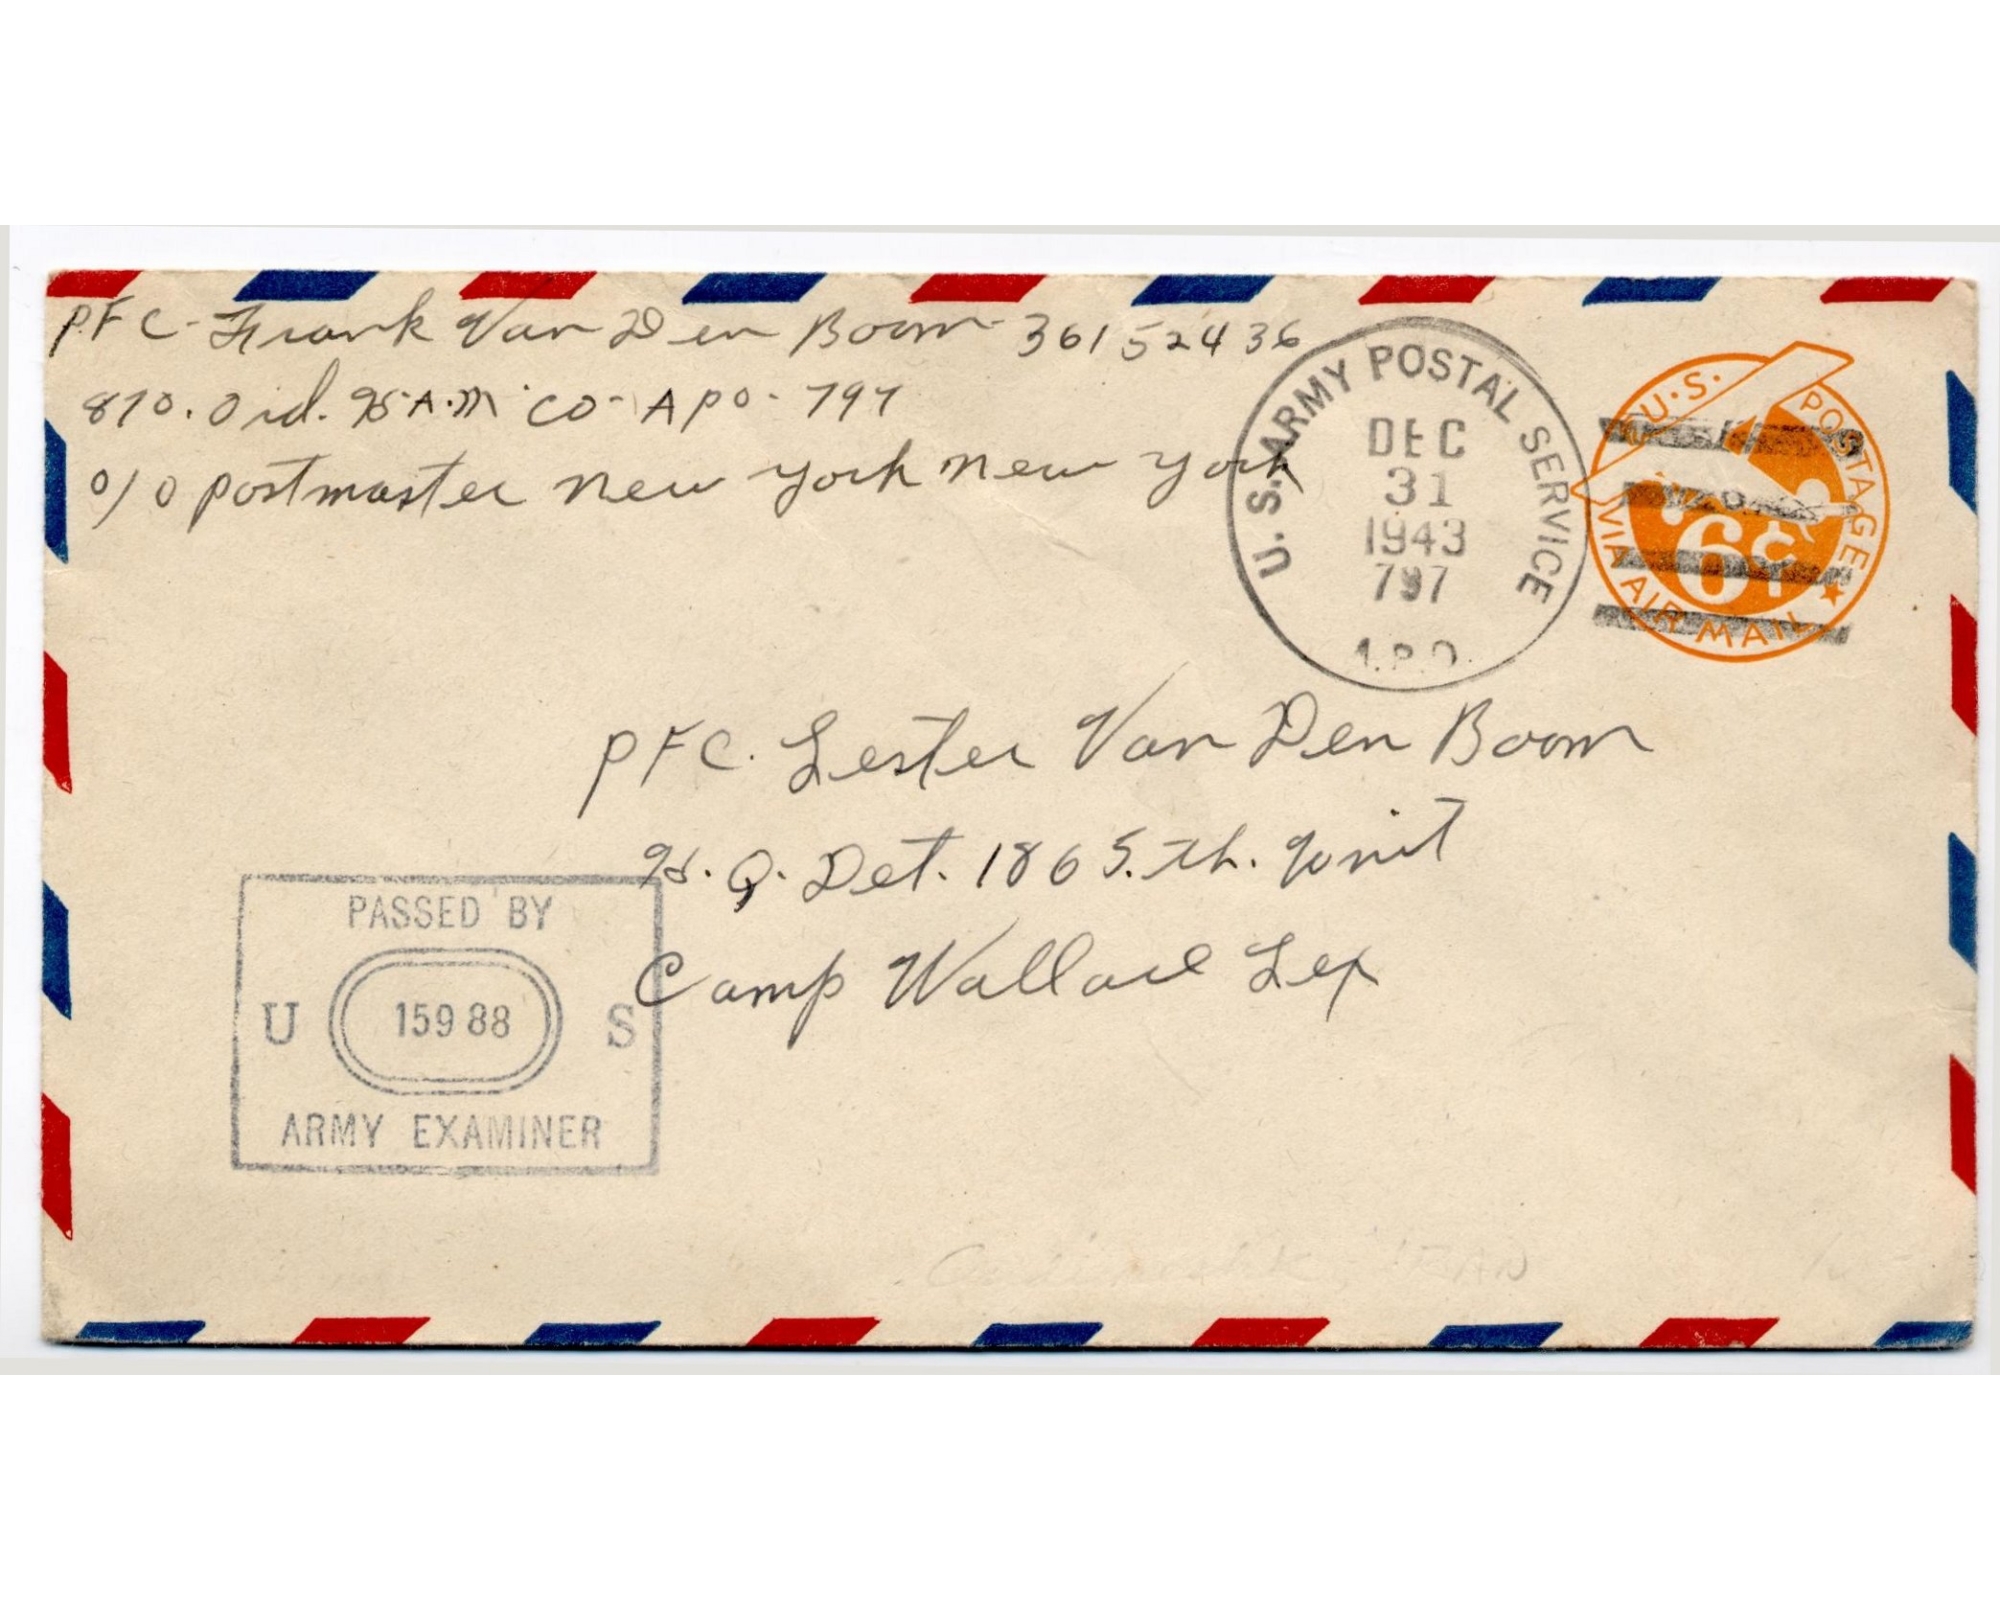 P.F.C- Frank Van Den Boom- 36152436
870. Ord. H.A.M. CO- A P O- 797
c/o postmaster new york new york
U.S. ARMY POSTAL SERVICE
DEC
31
1943
797
A.P.O.
U.S. POSTAGE
6¢
VIA AIR MAIL
PFC. Lester Van Den Boom
H. Q. Det. 1865.th. Unit
Camp Wallace Tex
PASSED BY
U 15988 S
ARMY EXAMINER
IRAN